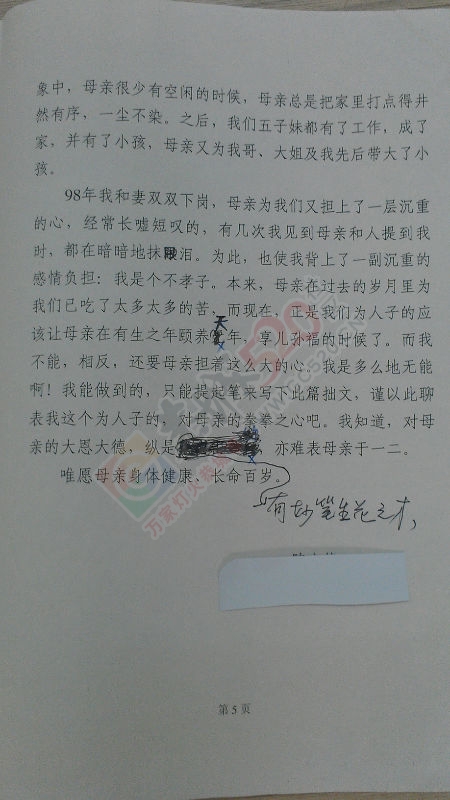 象中，母亲很少有空闲的时候，母亲总是把家里打点得井
然有序，一尘不染。之后，我们五子妹都有了工作，成了
家，并有了小孩，母亲又为我哥、大姐及我先后带大了小
孩。
98年我和妻双双下岗，母亲为我们又担上了一层沉重
的心，经常长嘘短叹的，有几次我见到母亲和人提到我
时，都在暗暗地抹眼泪。为此，也使我背上了一副沉重的
感情负担：我是个不孝子。本来，母亲在过去的岁月里为
我们已吃了太多太多的苦，而现在，正是我们为人子的应
该让母亲在有生之年颐养天年，享儿孙福的时候了。而我
不能，相反，还要母亲担着这么大的心，我是多么地无能
啊！我能做到的，只能提起笔来写下此篇拙文，谨以此聊
表我这个为人子的，对母亲的拳拳之心吧。我知道，对母
亲的大恩大德，纵是 亦难表母亲于一二。
唯愿母亲身体健康，长命百岁。
有妙笔生花之才，
万家灯火
520
第 5 页